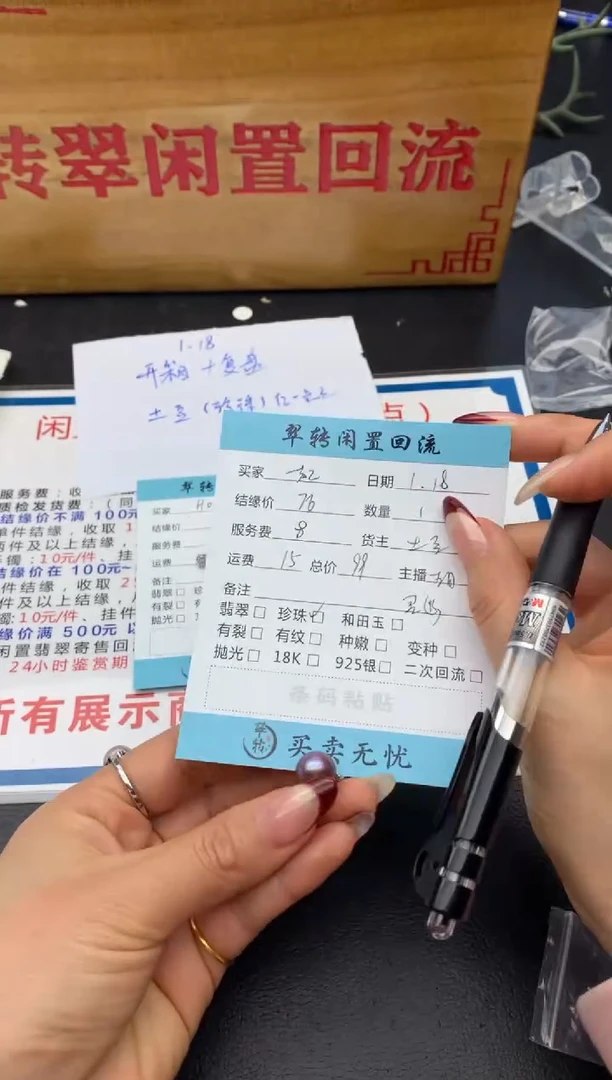 转翠闲置回流
1.18
开箱+复盘
土豆(珍珠)
翠转闲置回流
买家 红 日期 1.18
结缘价 76 数量 1
服务费 8 货主 土豆
运费 15 总价 99 主播
备注
翡翠□ 珍珠☑ 和田玉□
有裂□ 有纹□ 种嫩□ 变种□
抛光□ 18K□ 925银□ 二次回流□
条码粘贴
翠转 买卖无忧
翠转
买家
结缘价
服务费
运费
备注
翡翠□
有裂□
抛光□
服务费:收
质检发货费:(同
结缘价不满100元
单件结缘,收取
两件及以上结缘
10元/件、挂
结缘价在100元~
件结缘,收取
件及以上结缘,
:10元/件、挂件
缘价满500元以
闲置翡翠寄售回
24小时鉴赏期
所有展示商